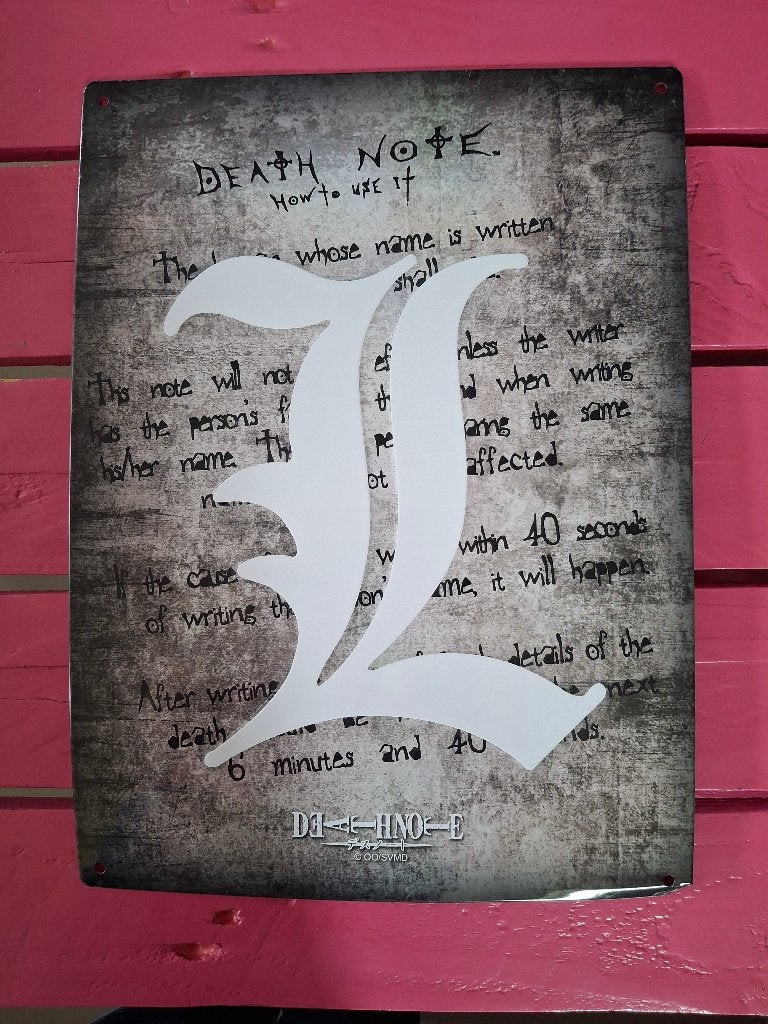 DEATH NOTE.
HOW TO USE IT
The whose name is written
shall
L
This note will not unless the writer
has the person's when writing
his/her name. the same
affected.
If the within 40 seconds
of writing name, it will happen.
After writing details of the
death be next
6 minutes and 40
DEATHNOTE
デスノート
© OD/SVMD